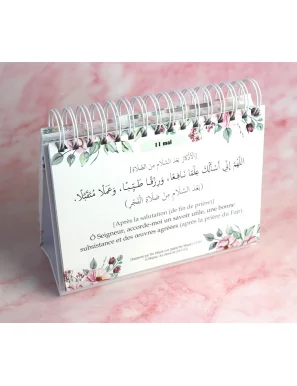 11 mai
(الأَذْكَارُ بَعْدَ السَّلَامِ مِنَ الصَّلَاةِ)
اللَّهُمَّ إِنِّي أَسْأَلُكَ عِلْمًا نَافِعًا، وَرِزْقًا طَيِّبًا، وَعَمَلًا مُتَقَبَّلًا.
(بَعْدَ السَّلَامِ مِنْ صَلَاةِ الفَجْرِ)
(Après la salutation (de fin de prière))
Ô Seigneur, accorde-moi un savoir utile, une bonne
subsistance et des œuvres agréées (après la prière du Fajr)